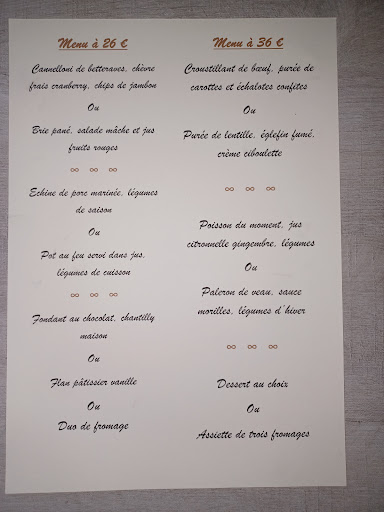 Menu à 26 €
Cannelloni de betteraves, chèvre
frais cranberry, chips de jambon
Ou
Brie pané, salade mâche et jus
fruits rouges
∞ ∞ ∞
Echine de porc marinée, légumes
de saison
Ou
Pot au feu servi dans jus,
légumes de cuisson
∞ ∞ ∞
Fondant au chocolat, chantilly
maison
Ou
Flan pâtissier vanille
Ou
Duo de fromage
Menu à 36 €
Croustillant de bœuf, purée de
carottes et échalotes confites
Ou
Purée de lentille, églefin fumé,
crème ciboulette
∞ ∞ ∞
Poisson du moment, jus
citronnelle gingembre, légumes
Ou
Paleron de veau, sauce
morilles, légumes d'hiver
∞ ∞ ∞
Dessert au choix
Ou
Assiette de trois fromages